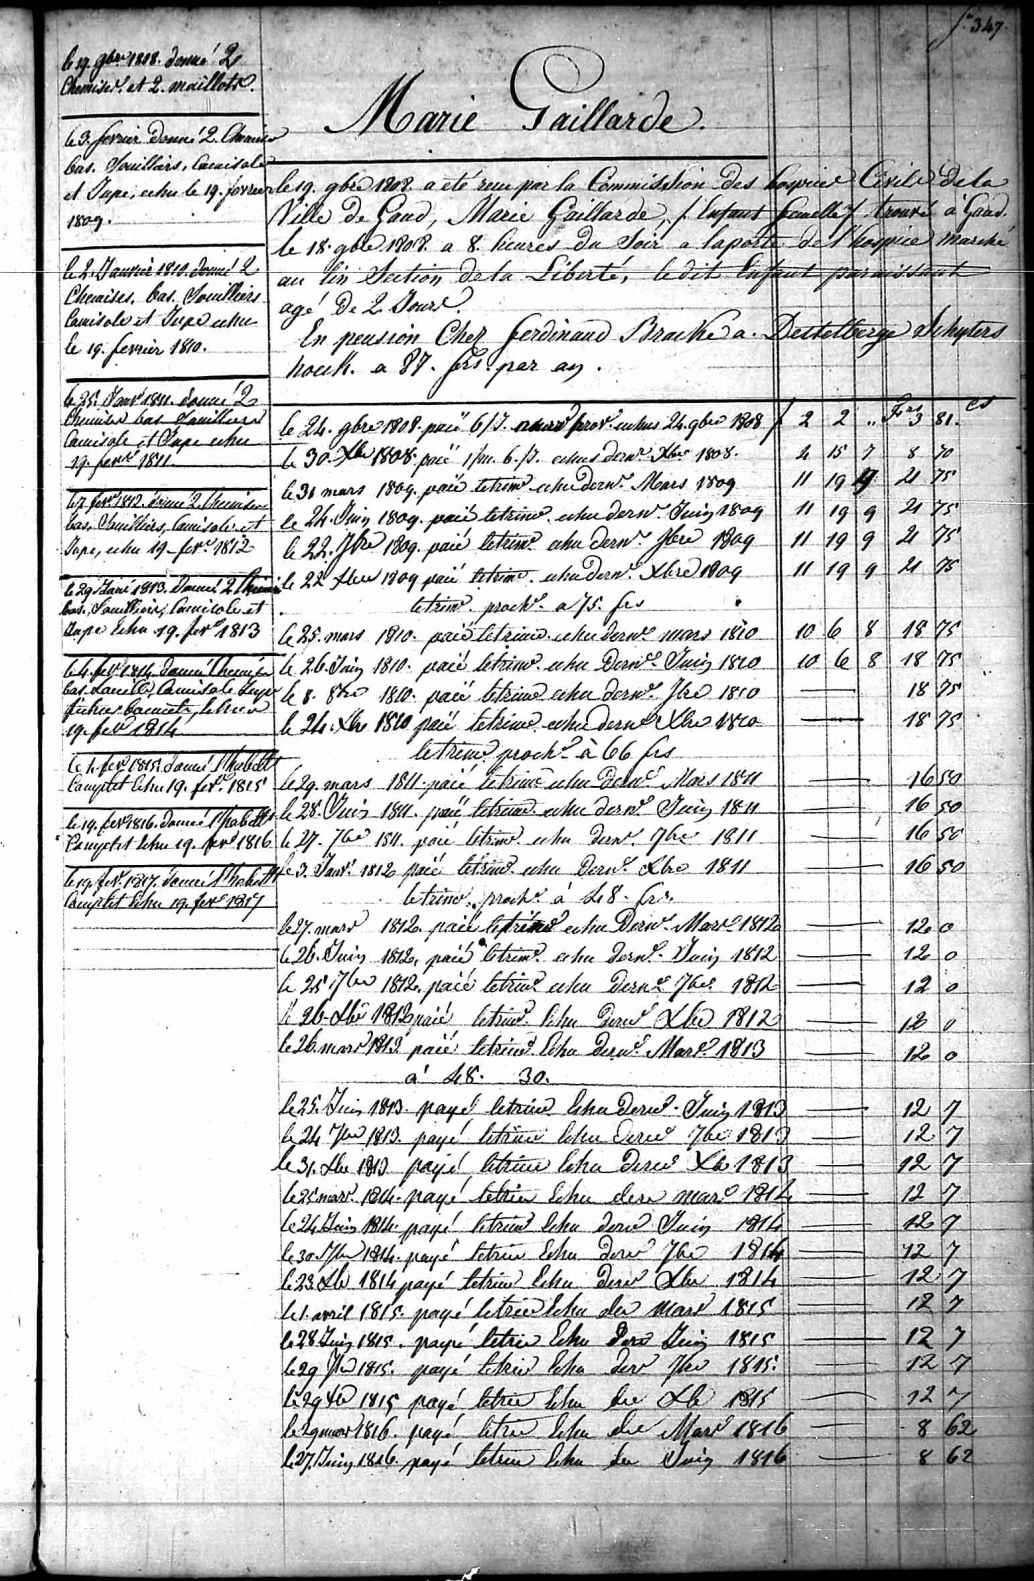 fo 347.
le 19. gbre 1808. donné 2
Chemises et 2. maillots.
le 3. fevrier donné 2. Chemises
bas. Souilliers, Camisole
et Jupe, echu le 19. fevrier
1809.
le 2. Janvier 1810. donné 2
Chemises. bas. Souilliers
Camisole et Jupe echu
le 19. fevrier 1810.
le 25. Janvr 1811. donné 2
Chemises bas Souilliers
Camisole et Jupe echu
19. fevr 1811.
le 7. fevr 1812. donné 2 Chemises
bas. Souilliers, Camisole et
Jupe, echu 19. fevr 1812
le 29 Janvr 1813. Donné 2 Chemises
bas, Souilliers, Camisole et
Jupe Echu 19. fevr 1813
le 4. fevr 1814. donné Chemise
bas Camisole Jupe
19. fevr 1814
le 1. fevr 1815. donné l'habillt
Complet Echu 19. fevr 1815
le 19. fevr 1816. donné l'habillt
Complet Echu 19. fevr 1816
le 19. fevr. 1817. donné l'habillt
Complet Echu 19. fevr 1817
Marie Gaillarde.
le 19. gbre 1808. a été reçu par la Commission des hospices Civils de la
Ville de Gand, Marie Gaillarde, /. Enfant femelle /. trouvé à Gand.
le 18. gbre 1808. a 8. heures du Soir a la porte de l'hospice marché
au lin Section de la Liberté, le dit Enfant paraissant
agé de 2 Jours.
En pension Chez Ferdinand Bracke a. Destelberge Schuyters
houk. a 87. frs. par an.
le 24. gbre 1808. paié 6/J. prov. echus 24. gbre 1808 f 2 2 .. Frs 3 81. cs
le 30. Xbre 1808. paié 1/m. 6./J. echus dernr Xbre 1808. 4 15 7 8 70
le 31 mars 1809. paié le trime echu dernr. Mars 1809 11 19 9 21 75
le 24. Juin 1809. paié le trime echu dernr. Juin 1809 11 19 9 21 75
le 22. 7bre 1809. paié le trimr. echu dernr. 7bre 1809 11 19 9 21 75
le 22 Xbre 1809 paié le trime. echu dernr. Xbre 1809 11 19 9 21 75
le trimr. prochn. a 75. frs
le 25. mars 1810. paié le trime echu dernr mars 1810 10 6 8 18 75
le 26. Juin 1810. paié le trimr. echu Dernr. Juin 1810 10 6 8 18 75
le 8. 8bre 1810. paié le trime echu dernr. 7bre 1810 18 75
le 24. Xbre 1810 paié le trime echu dernr Xbre 1810 18 75
le trimr. prochn. à 66 frs
le 29. mars 1811. paié le trime echu dernr. Mars 1811 16 50
le 28. Juin 1811. paié le trime echu dernr. Juin 1811 16 50
le 27. 7bre 1811. paié le trimr. echu dernr. 7bre 1811 16 50
le 3. Janvr 1812 paié le trimr. echu Dernr. Xbre 1811 16 50
le trimr. prochn. à 48. frs.
le 27. mars 1812. paié le trimr echu Dernr. Mars 1812 12 0
le 26. Juin 1812. paié le trimr. echu dernr. Juin 1812 12 0
le 25 7bre 1812. paié le trimr. echu Dernr 7bre 1812 12 0
le 26. Xbre 1812 paié le trimr. Echu Dernr Xbre 1812 12 0
le 26. mars 1813 paié le trimr. Echu dernr. Mars. 1813 12 0
à 48. 30.
le 25. Juin 1813. payé le trime Echu dernr. Juin 1813 12 7
le 24 7bre 1813. payé le trime Echu dernr 7bre 1813 12 7
le 31. Xbre 1813 payé le trime Echu dernr Xbre 1813 12 7
le 25 mars. 1814. payé le trime Echu dern mars 1814 12 7
le 24 Juin 1814. payé le trimr Echu dernr Juin 1814 12 7
le 30. 7bre 1814. payé le trime Echu dernr 7bre 1814 12 7
le 23 Xbre 1814 payé le trimr Echu dernr Xbre 1814 12 7
le 1. avril 1815. payé le trime Echu der mars 1815 12 7
le 28 Juin 1815. payé le trim Echu Dern Juin 1815 12 7
le 29 7bre 1815. payé le trim Echu der 7bre 1815. 12 7
le 29 Xbre 1815 payé le trim Echu der Xbre 1815 12 7
le 29 mars 1816. payé le trim Echu der Mars 1816 8 62
le 27. Juin 1816. payé le trim Echu der Juin 1816 8 62